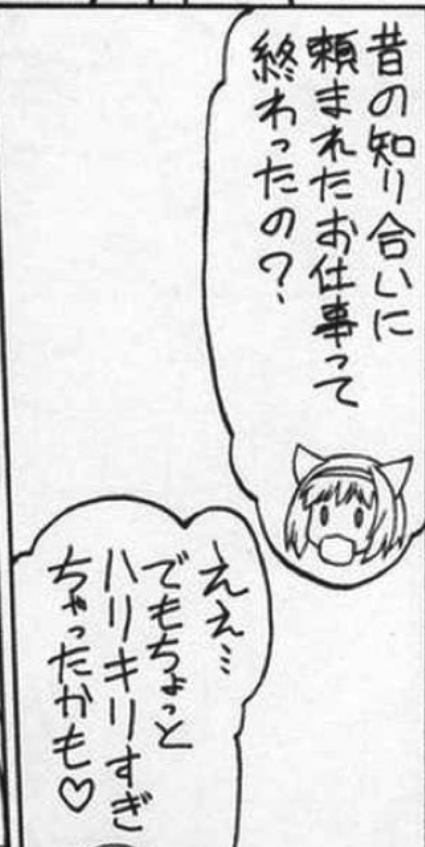 昔の知り合いに
頼まれたお仕事って
終わったの？
ええ…
でもちょっと
ハリキリすぎ
ちゃったかも♡